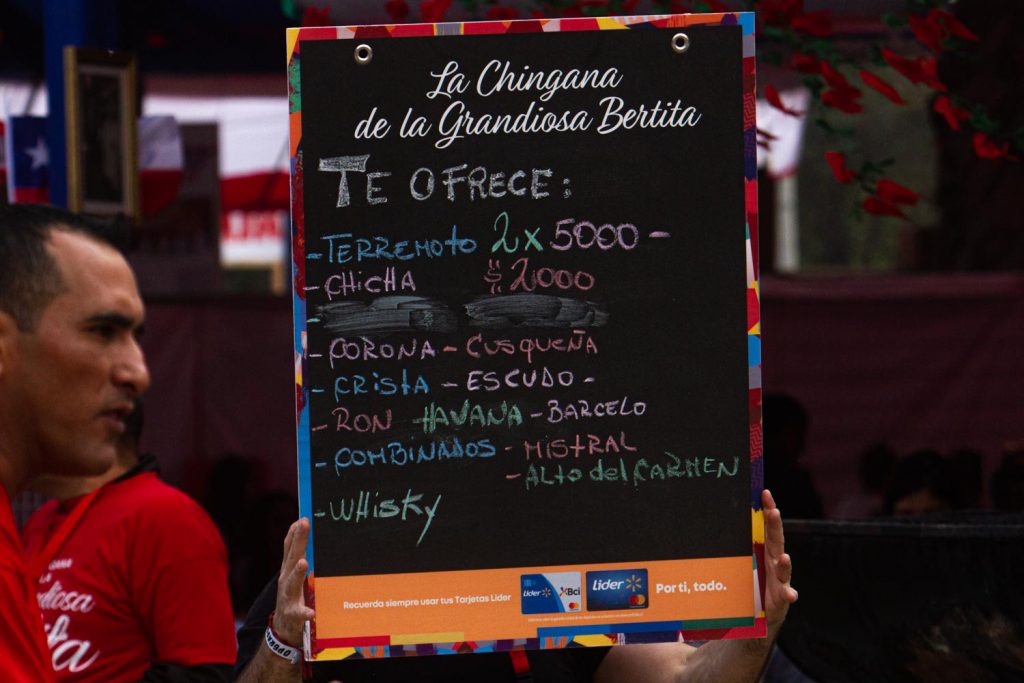 La Chingana
de la Grandiosa Bertita
TE OFRECE:
- TERREMOTO 2x 5000 -
- CHICHA $ 2000
- CORONA - CUSQUEÑA
- CRISTA - ESCUDO -
- RON HAVANA - BARCELO
- COMBINADOS - MISTRAL
- ALTO del CARMEN
- WHISKY
Recuerda siempre usar tus Tarjetas Lider
lider Bci
lider
Por ti, todo.
LA